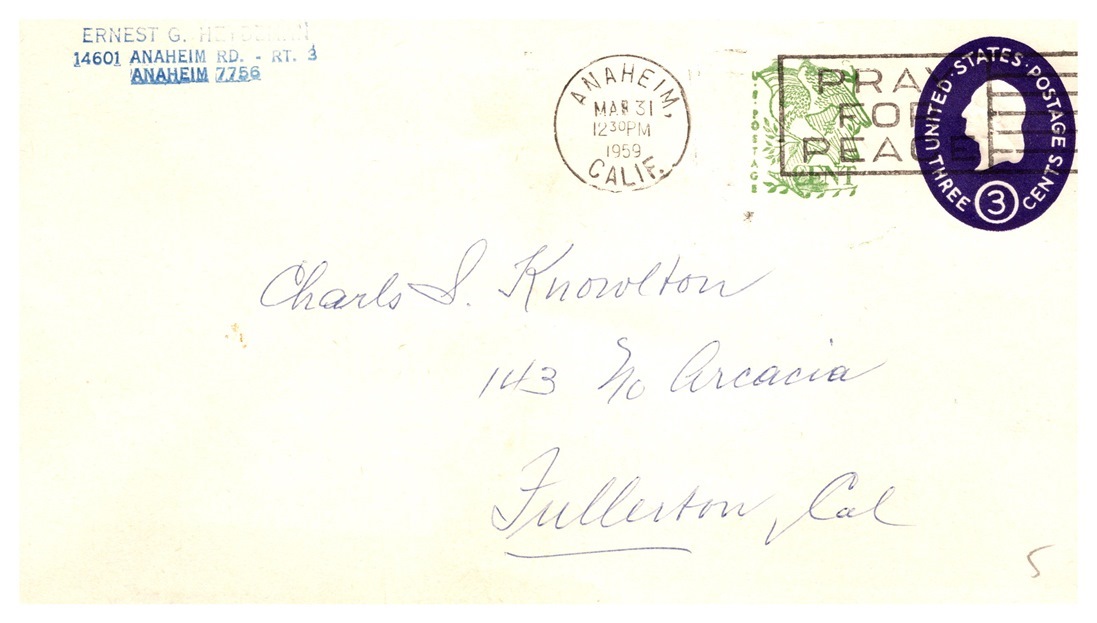 ERNEST G. HEYDEMAN
14601 ANAHEIM RD. - RT. 3
ANAHEIM 7756
ANAHEIM,
MAR 31
12 30 PM
1959
CALIF.
U.S. POSTAGE
CENT
PRAY
FOR
PEACE
UNITED·STATES·POSTAGE
THREE 3 CENTS
Charls S. Knowlton
143 No Arcacia
Fullerton, Cal
5